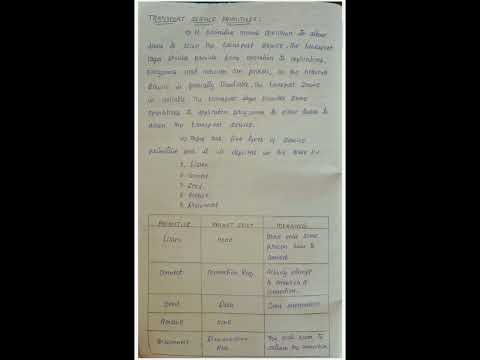 TRANSPORT SERVICE PRIMITIVES:
A primitive means operation. To allow
users to access the transport service, the transport
layer should provide some operation to application
programs
service is generally
service
is reliable. The transport layer provides some
operations to application programs to allow users to
access the transport service.
There are five types of service
primitive and it is
1. Listen
2. Connect
3. Send
4. Receive
5. Disconnect
PRIMITIVE PACKET SENT MEANING
Listen none Block until some
process tries to
connect
Connect Connection Req. Actively attempt
to establish a
connection.
Send Data Send information
Receive none
Disconnect Disconnection
Req. This side wants to
release the connection